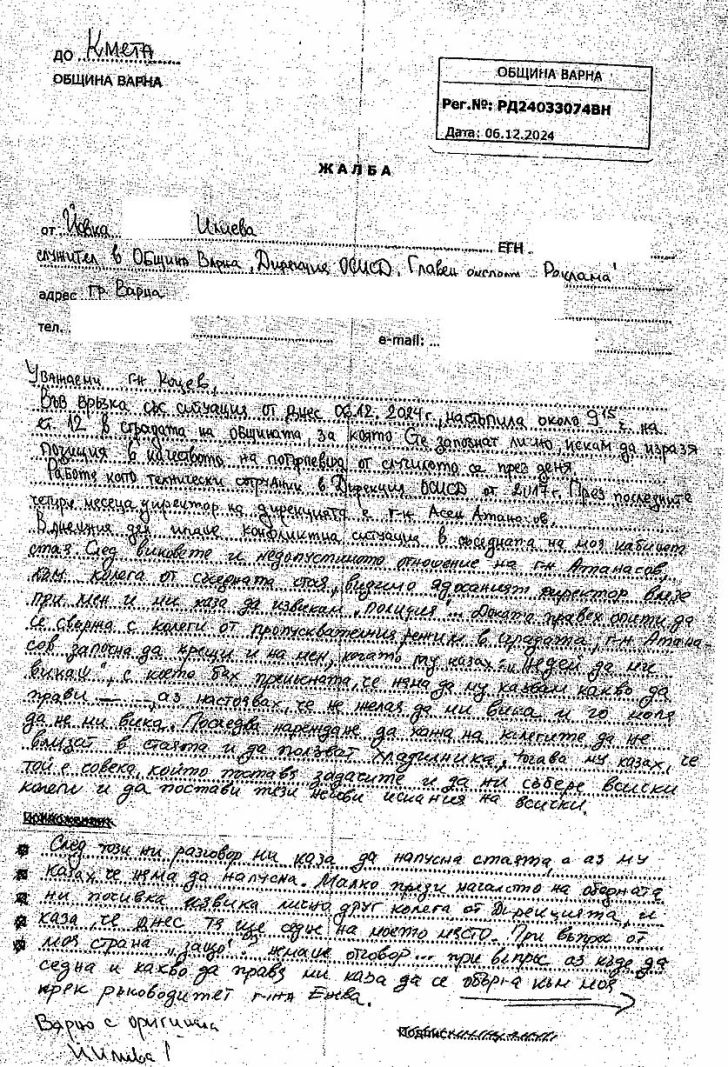 до Кмета
ОБЩИНА ВАРНА
ОБЩИНА ВАРНА
Рег.№: РД24033074ВН
Дата: 06.12.2024
ЖАЛБА
от Йовка Илиева ЕГН
служител в Община Варна, Дирекция ОСИСД, Главен експерт "Реклама"
адрес гр. Варна
тел. e-mail:
Уважаеми г-н Коцев,
Във връзка със ситуация от днес 06.12.2024г., настъпила около 9 15 ч. на
ет. 12 в сградата на общината, за която Сте запознат лично, искам да изразя
позиция в качеството на потърпевша от случилото се през деня.
Работя като технически сътрудник в Дирекция ОСИСД от 2017г. През последните
четири месеца директор на дирекцията е г-н Асен Атанасов.
В днешния ден имаше конфликтна ситуация в съседната на моя кабинет
стая. След виковете и недопустимото отношение на г-н Атанасов,
към колега от съседната стая, видимо ядосаният директор влезе
при мен и ми каза да извикам "полиция"... Докато правех опити да
се свържа с колеги от пропусквателния режим в сградата, г-н Атана-
сов започна да крещи и на мен, когато му казах: "Недей да ми
викаш", с което бях прекъсната, че няма да му казвам какво да
прави аз настоявах, че не желая да ми вика и го моля
да не ми вика. Последва нареждане да кажа на колегите да не
влизат в стаята и да ползват хладилника, тогава му казах, че
той е човека, който поставя задачите и да ни събере всички
колеги и да постави тези негови искания на всички.
След този ни разговор ми каза да напусна стаята, а аз му
казах, че няма да напусна. Малко преди началото на обедната
ни почивка извика лично друг колега от Дирекцията, и
каза, че днес тя ще седне на моето място. При въпрос от
моя страна "защо?" нямаше отговор... при въпрос аз къде да
седна и какво да правя ми каза да се обърна към моя
прек ръководител г-жа Енева.
Вярно с оригинала
Й.Илиева